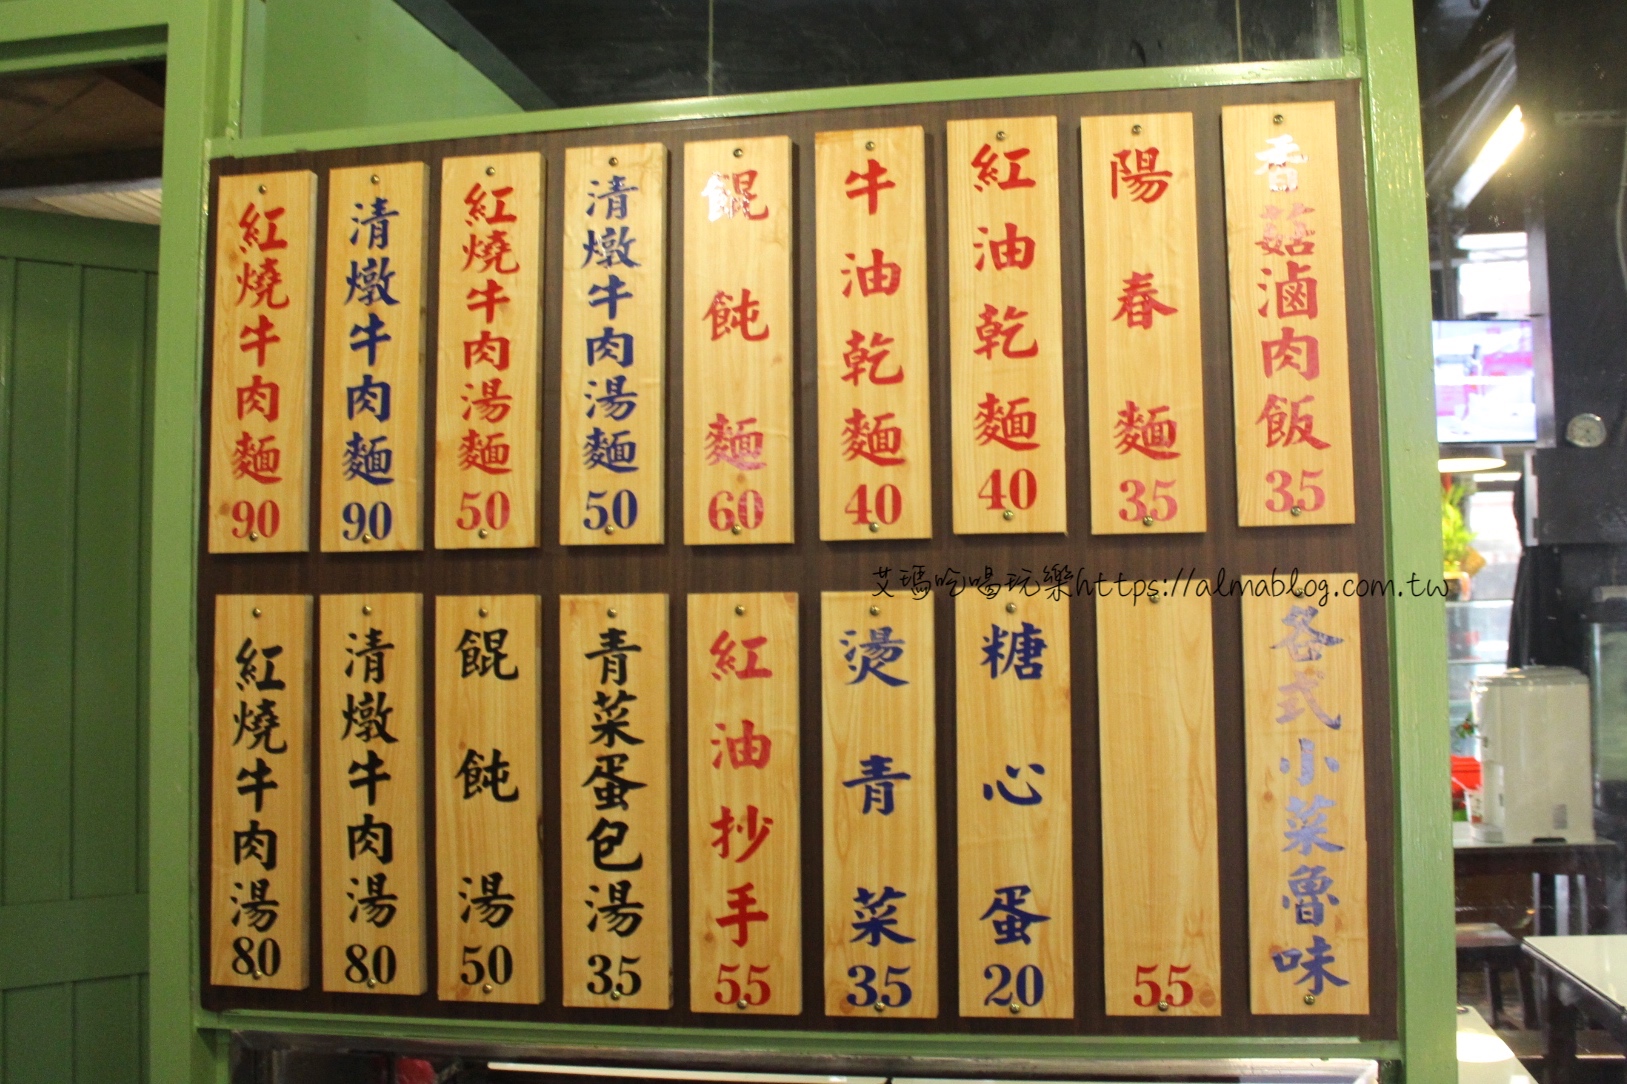 紅燒牛肉麵90
清燉牛肉麵90
紅燒牛肉湯麵50
清燉牛肉湯麵50
餛飩麵60
牛油乾麵40
紅油乾麵40
陽春麵35
香菇滷肉飯35
艾瑪吃喝玩樂https://almablog.com.tw
紅燒牛肉湯80
清燉牛肉湯80
餛飩湯50
青菜蛋包湯35
紅油抄手55
燙青菜35
糖心蛋20
55
各式小菜魯味